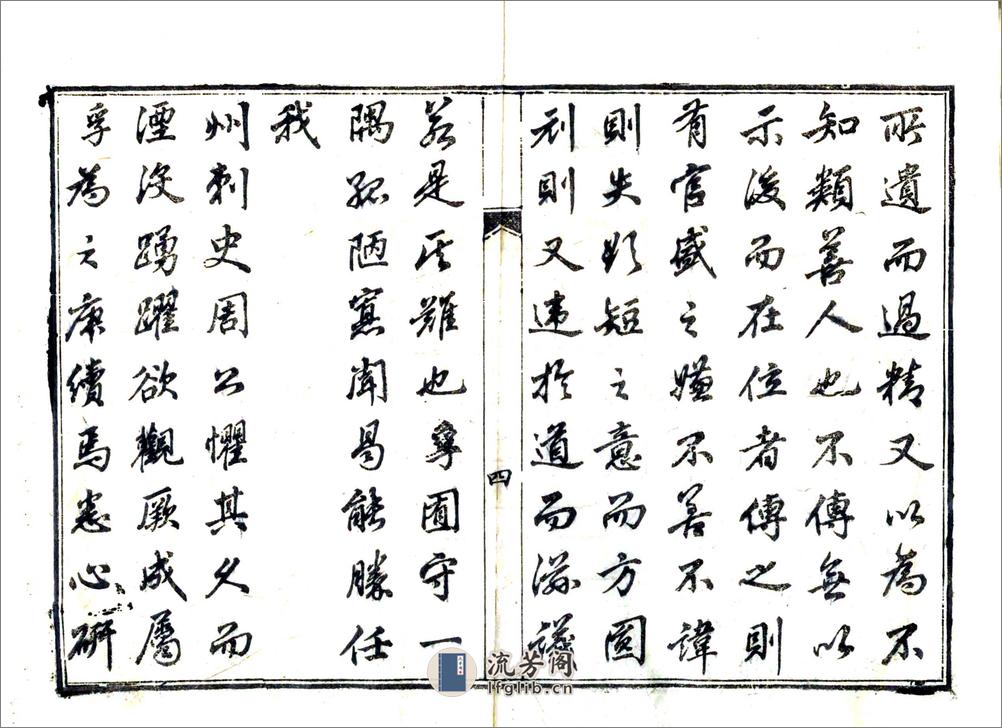 所遺而過精又以為不
知類善人也不傳無以
示後而在位者傳之則
有官盛之嫌不善不諱
則失彰短之意而方圓
刓則又違於道而滋議
四
若是其難也孚囿守一
隅孤陋寡聞曷能勝任
我
州刺史周公懼其久而
湮没踴躍欲觀厥成屬
孚為之庚續焉悉心研
流芳阁
lfglib.cn